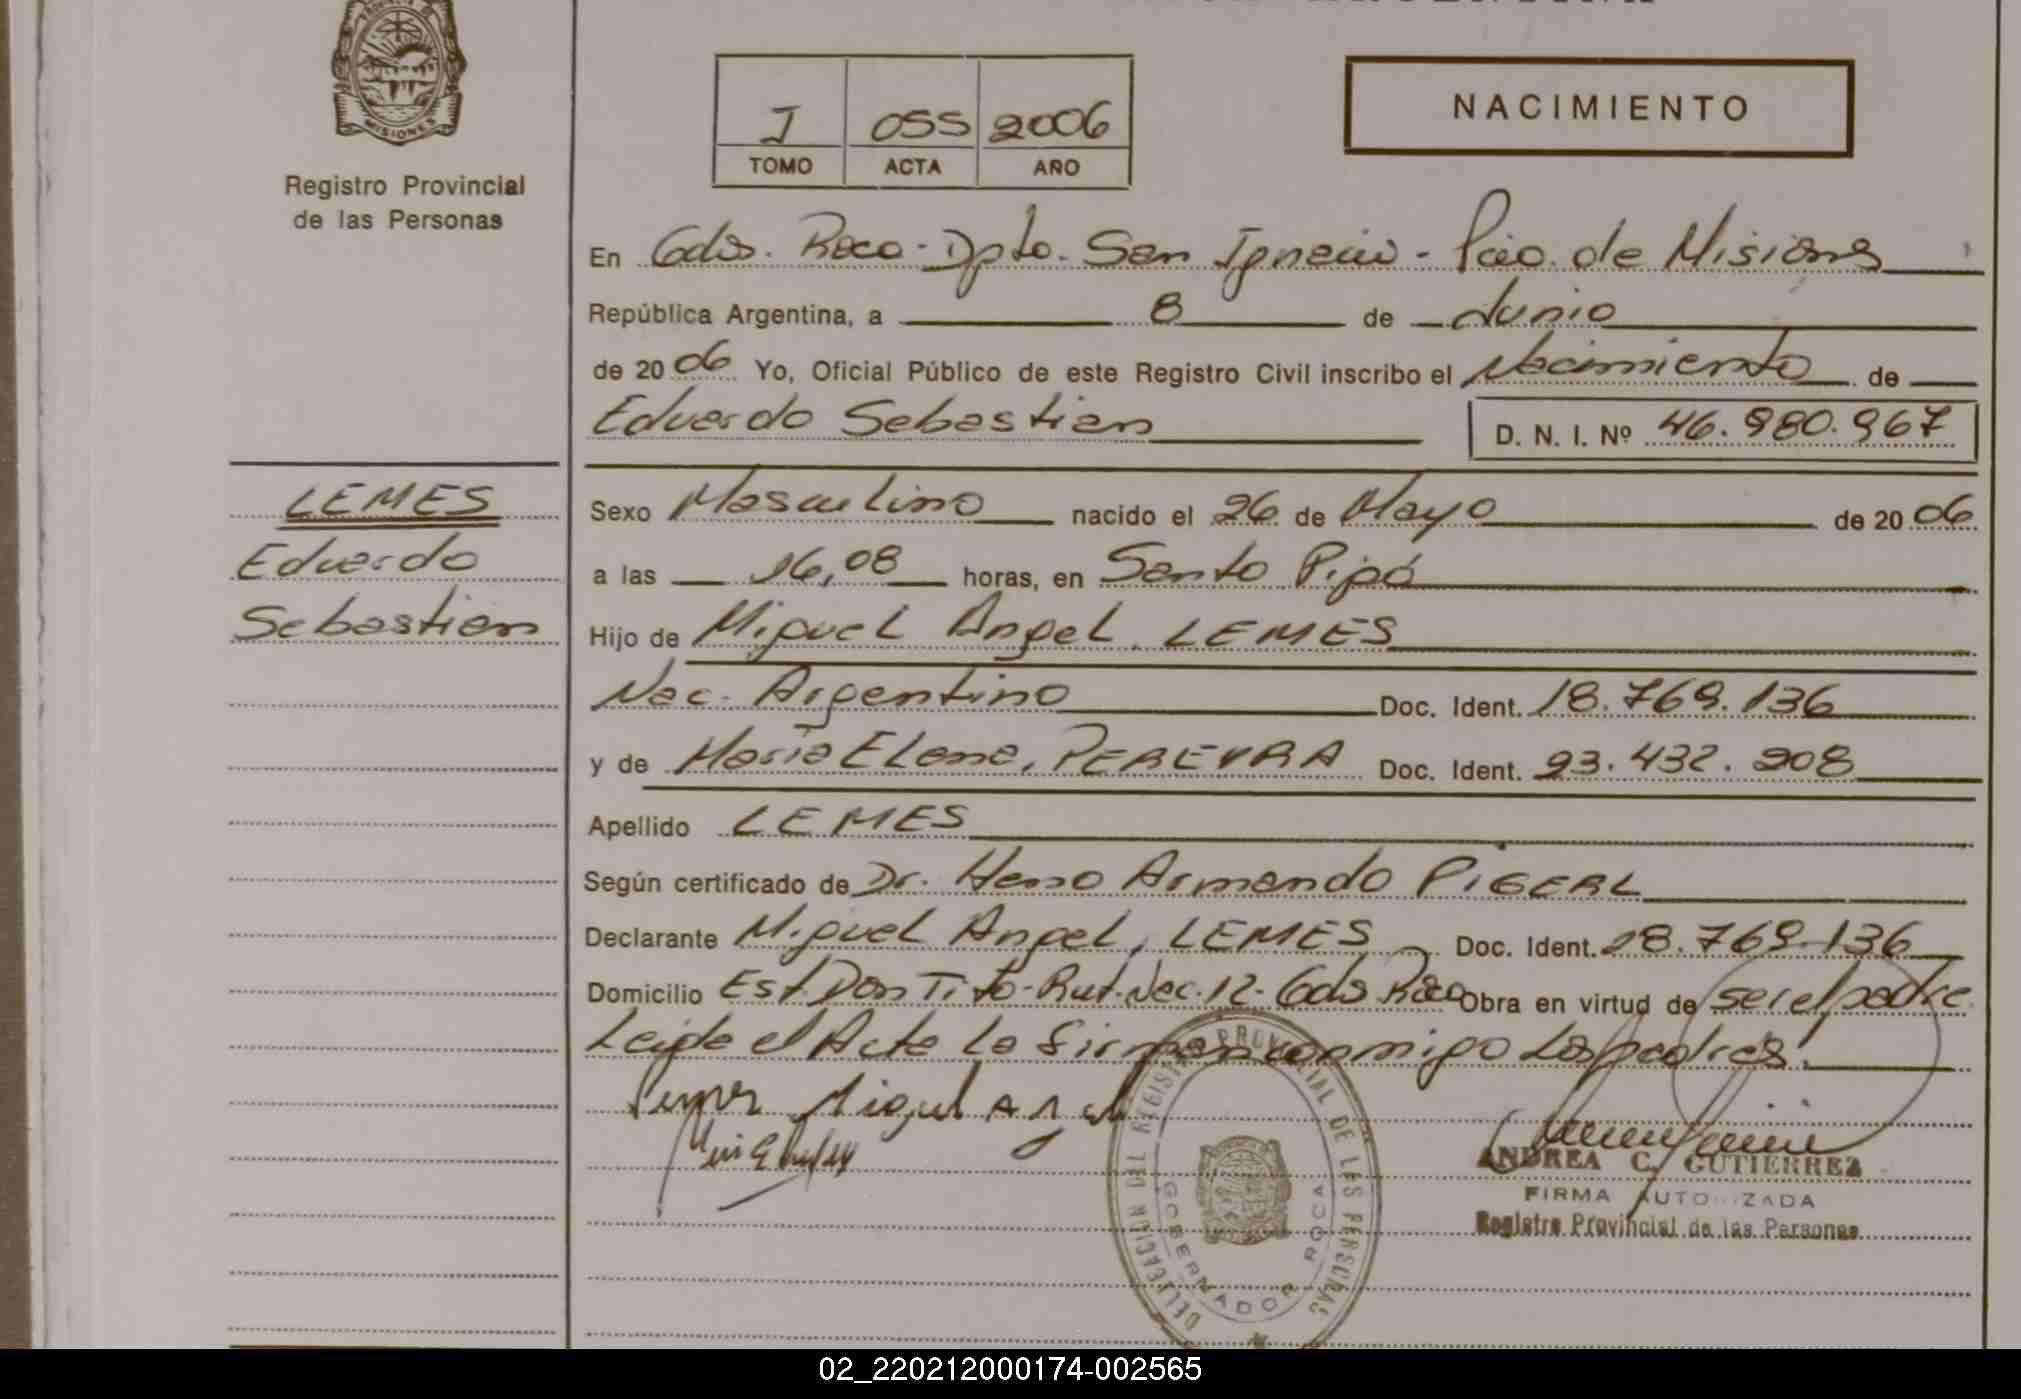 MISIONES
Registro Provincial
de las Personas
I 055 2006
TOMO ACTA AÑO
NACIMIENTO
En Gdor. Roca - Dpto. San Ignacio - Pcia. de Misiones
República Argentina, a 8 de Junio
de 2006 Yo, Oficial Público de este Registro Civil inscribo el Nacimiento de
Eduardo Sebastian D. N. I. Nº 46.980.967
LEMES
Eduardo
Sebastian
Sexo Masculino nacido el 26 de Mayo de 2006
a las 16,08 horas, en Santo Pipó
Hijo de Miguel Angel, LEMES
Nac. Argentino Doc. Ident. 18.769.136
y de Maria Elena, PEREYRA Doc. Ident. 93.432.908
Apellido LEMES
Según certificado de Dr. Armando
Declarante Miguel Angel, LEMES Doc. Ident. 18.769.136
Domicilio Est. Don Tito - Rut. Nac. 12 - Gdor. Roca Obra en virtud de ser el padre
Leida el Acta la firman conmigo los padres.
Lemes Miguel Angel
DELEGACION DEL REGISTRO PROVINCIAL DE LAS PERSONAS
GOBERNADOR ROCA
ANDREA C. GUTIERREZ
FIRMA AUTORIZADA
Registro Provincial de las Personas
02_220212000174-002565